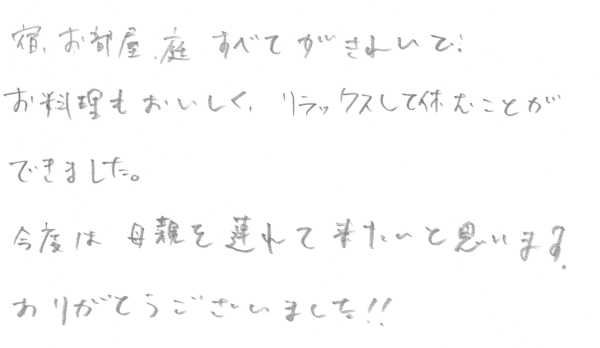 宿、お部屋、庭 すべてがきれいで、
お料理もおいしく、リラックスして休むことが
できました。
今度は 母親を連れて来たいと思います。
ありがとうございました!!